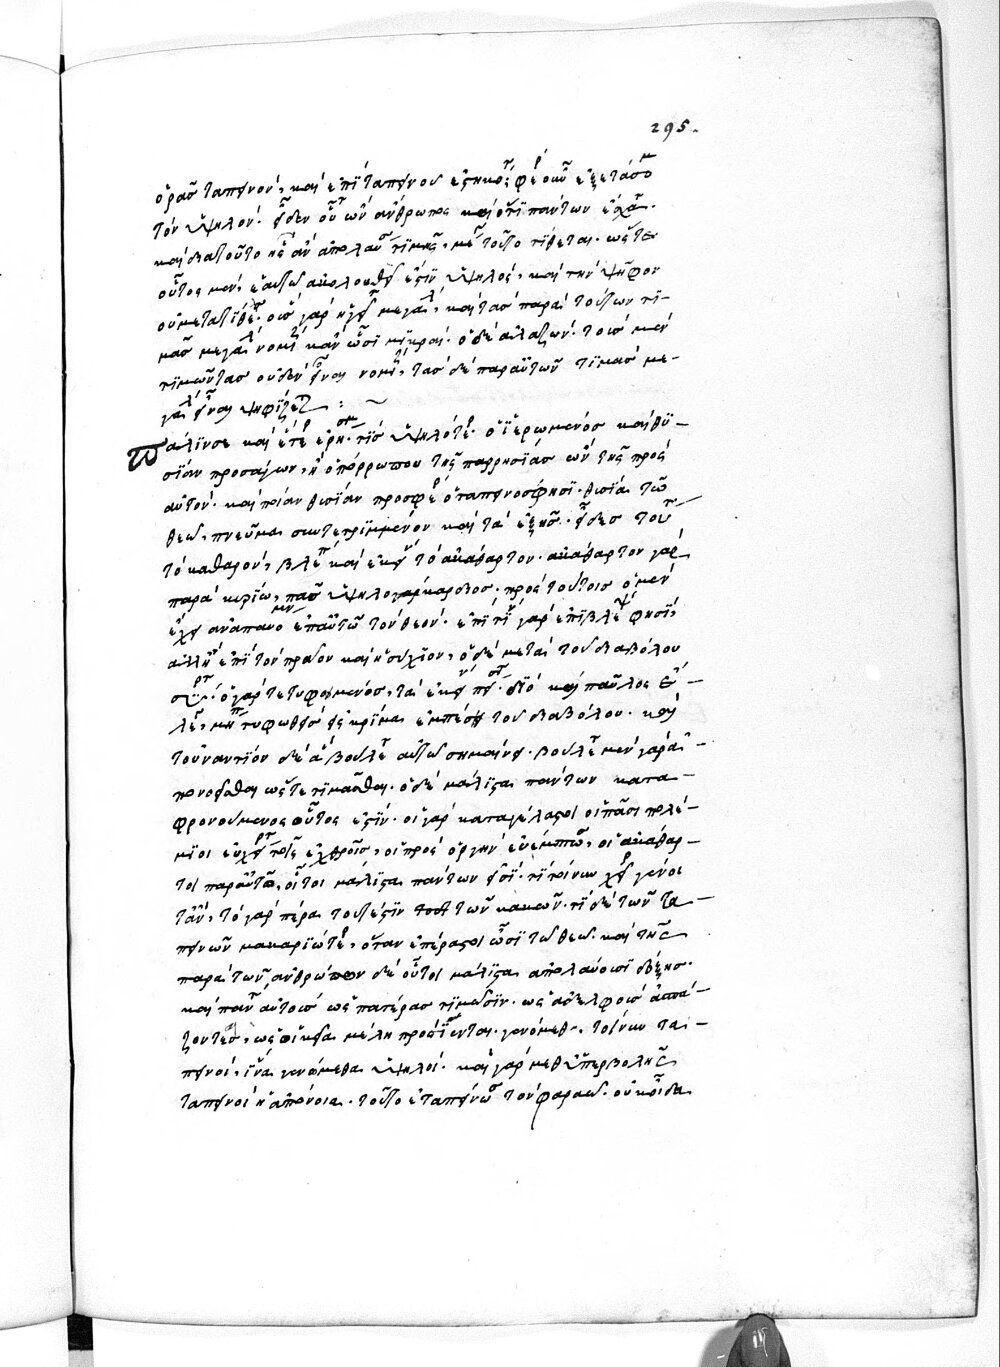 295.
ὁρᾶς ταπεινόν, καὶ ἐπὶ ταπεινοῦ ἕστηκε; φέρε οὖν ἐξετάσωμεν
τὸν ὑψηλόν. εἶδεν οὗτος ὢν ἄνθρωπος καὶ ὅτι πάντων
καὶ διατοῦτο ἧς ἂν ἀπολαύσῃ τιμῆς, μετὰ τοῦτο τίθεται. ὥστε
οὗτος μὲν, ἑαυτῷ ἀκολουθεῖ ἐστὶν ὑψηλὸς, καὶ τὴν ψῆφον
οὐ μετατίθεται. οὓς γὰρ ἡγεῖται μεγάλους, καὶ τὰς παρὰ τούτων τι-
μὰς μεγάλας νομίζει κἂν ὦσι μικραί. ὁ δὲ ἀλαζὼν. τοὺς μὲν
τιμῶντας οὐδὲν εἶναι νομίζει, τὰς δὲ παρ αὐτῶν τιμὰς με-
γάλας εἶναι ψηφίζεται :~
Πάλιν σε καὶ ἕτερον ἐρήσομαι. τίς ὑψηλότερος. ὁ ἱερωμένος καὶ θυ-
σίαν προσάγων, ἢ ὁ πόρρω που τῆς παρρησίας ὢν τῆς πρὸς
αὐτόν. καὶ ποίαν θυσίαν προσφέρει ὁ ταπεινὸς φησί. θυσία τῷ
θεῷ, πνεῦμα συντετριμμένον καὶ τὰ ἑξῆς. εἶδες τούτου
τὸ καθαρόν, βλέπε καὶ ἐκείνου τὸ ἀκάθαρτον. ἀκάθαρτον γὰρ
παρὰ κυρίῳ, πᾶς ὑψηλοκάρδιος. πρὸς τούτοις ὁ μὲν
ἔχει ἀναπαυόμενον ἐπ αὐτῷ τὸν θεόν. ἐπὶ τίνα γὰρ ἐπιβλέψω φησὶ,
ἀλλ ἢ ἐπὶ τὸν πρᾶον καὶ ἡσύχιον, ὁ δὲ μετὰ τοῦ διαβόλου
σύρεται. ὁ γὰρ τετυφωμένος, τὰ ἐκείνου πείσεται. διὸ καὶ παῦλος ἔ-
λεγε, μήποτε τυφωθεὶς εἰς κρῖμα ἐμπέσῃ τοῦ διαβόλου. καὶ
τοὐναντίον δὲ ἃ βούλεται αὐτῷ σημαίνει. βούλεται μὲν γὰρ ἀ-
πονοεῖσθαι ὥστε τιμᾶσθαι. ὁ δὲ μάλιστα πάντων κατα-
φρονούμενος οὗτος ἐστίν. οἱ γὰρ καταγέλαστοι οἱ πᾶσι πολέ-
μιοι εὐχείρωτοι τοῖς ἐχθροῖς, οἱ πρὸς ὀργὴν εὐέμπτωτοι, οἱ ἀκάθαρ-
τοι παρ αὐτῷ, οὗτοι μάλιστα πάντων εἰσὶ. τί τοίνυν χεῖρον γένοι
τ ἄν, τὸ γὰρ πέρα τοῦτ ἐστὶν τῶν κακῶν. τί δὲ τῶν τα-
πεινῶν μακαριώτερον, ὅταν ἐπέραστοι ὦσι τῷ θεῷ. καὶ τῆς
παρὰ τῶν ἀνθρώπων δὲ οὗτοι μάλιστα ἀπολαύουσι δόξης.
καὶ πάντες αὐτοὺς ὡς πατέρας τιμῶσιν. ὡς ἀδελφοὺς ἀσπά-
ζονται, ὡς οἰκεῖα μέλη προσίενται. γενώμεθα τοίνυν τα-
πεινοὶ, ἵνα γενώμεθα ὑψηλοί. καὶ γὰρ μεθ ὑπερβολῆς
ταπεινοῖ ἡ ἀπόνοια. τοῦτο ἐταπείνωσε τὸν φαραώ. οὐκ οἶδα